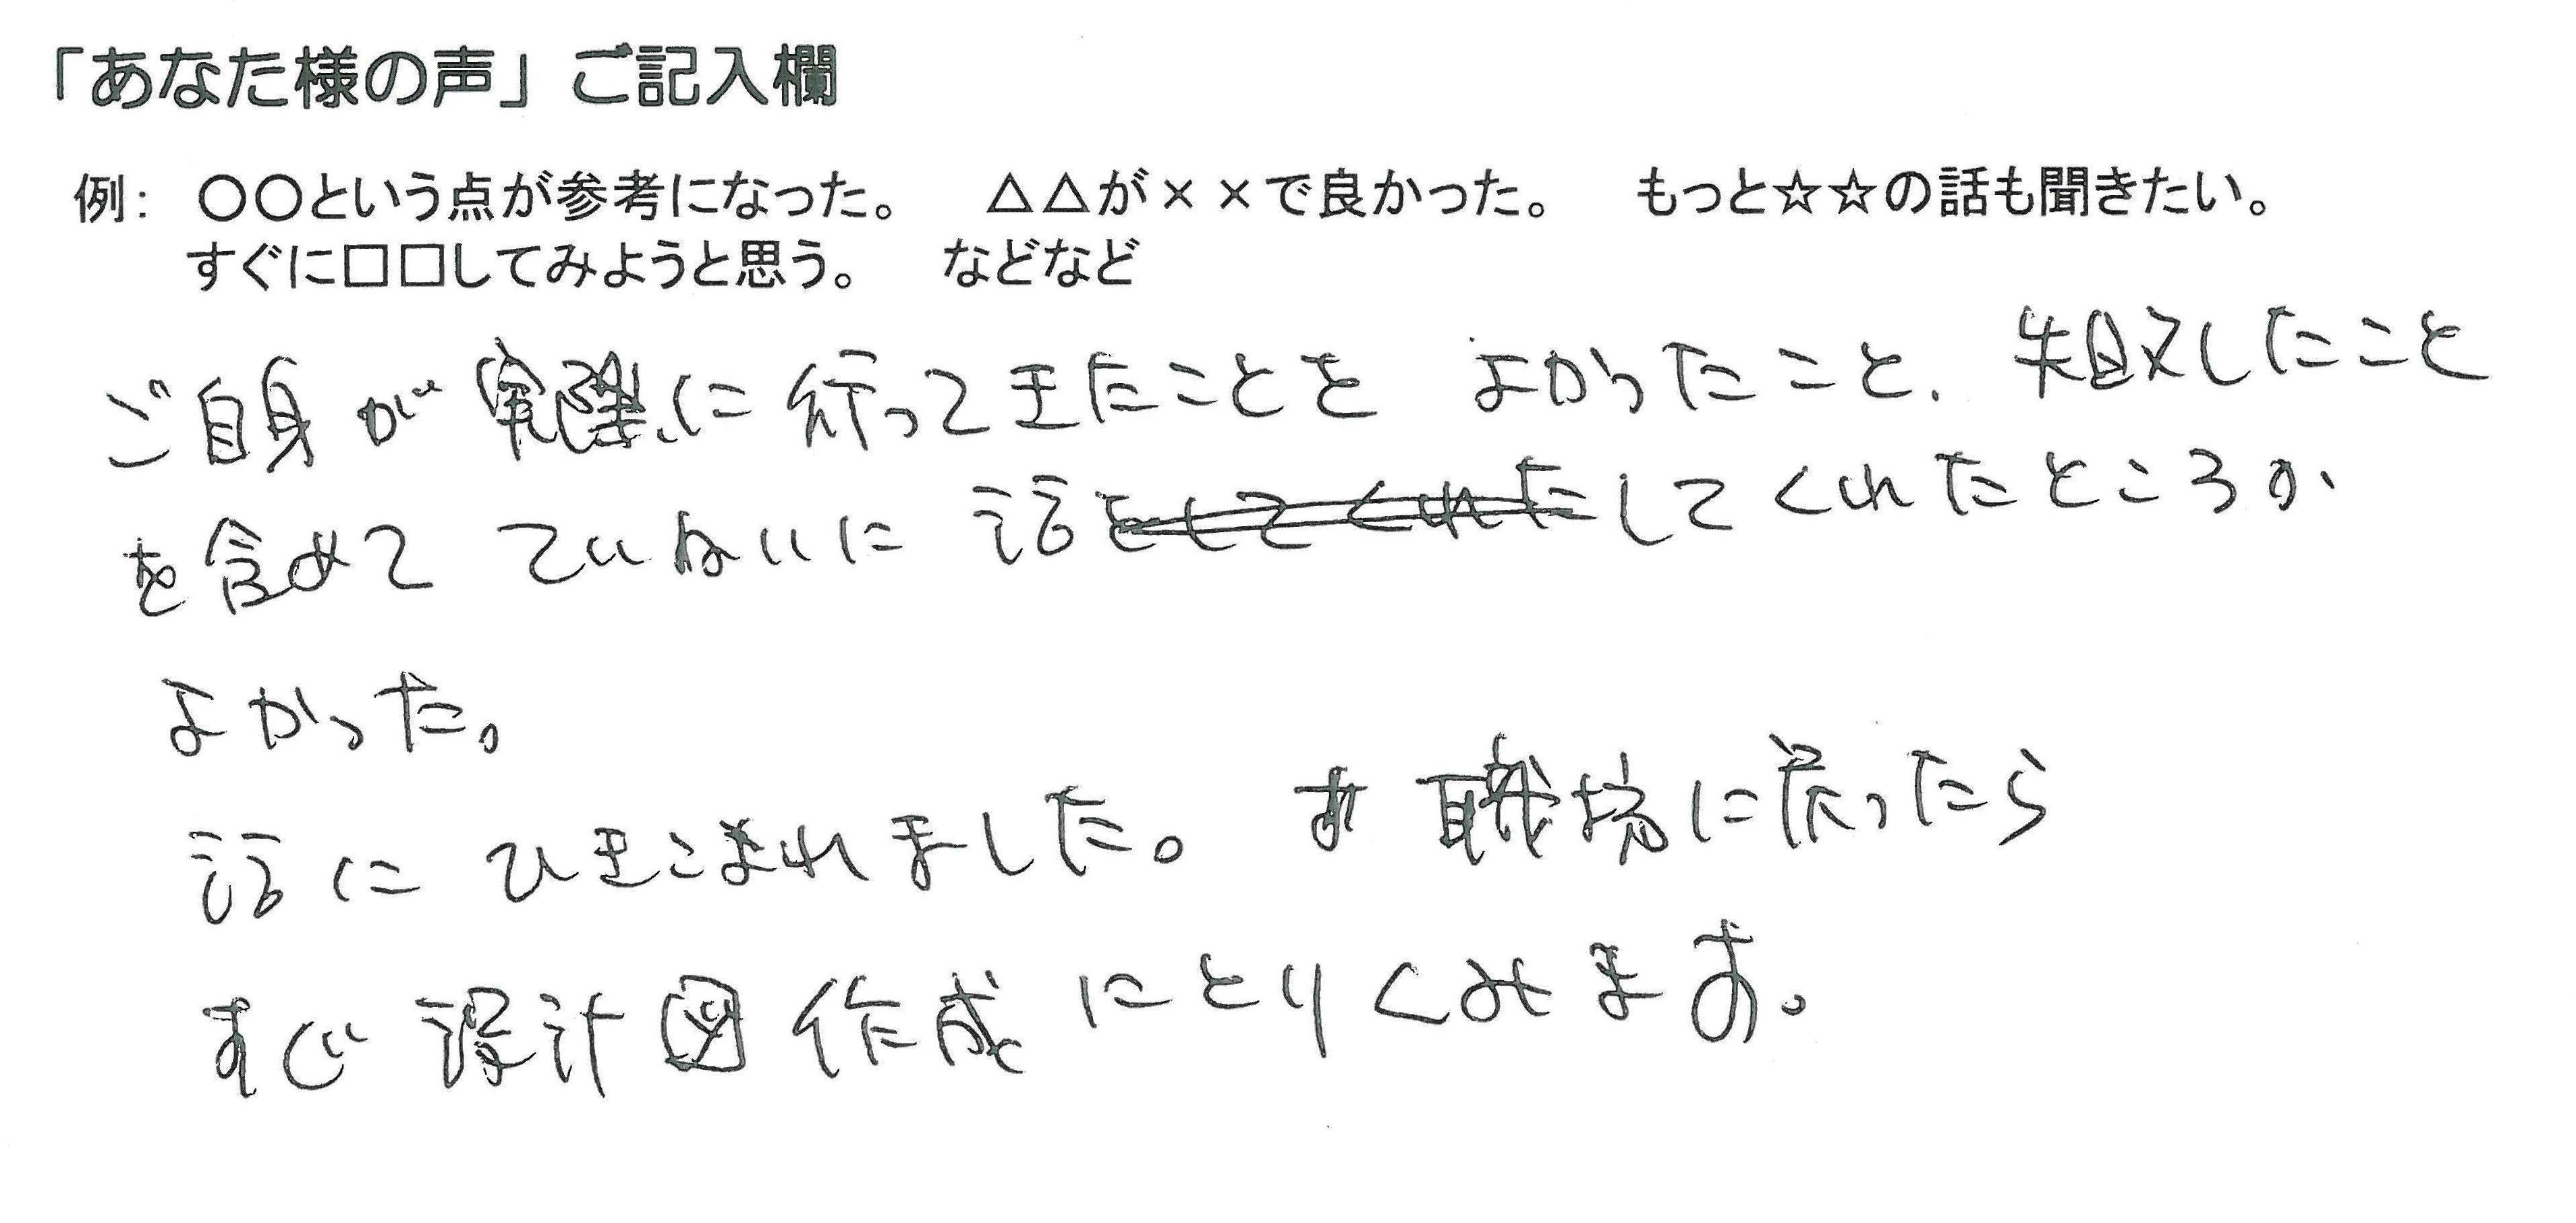 「あなた様の声」ご記入欄
例： ○○という点が参考になった。 △△が××で良かった。 もっと☆☆の話も聞きたい。
すぐに□□してみようと思う。 などなど
ご自身が実際に行ってきたことを よかったこと、失敗したこと
を含めて ていねいに 話をしてくれたしてくれたところが
よかった。
話に ひきこまれました。 す 職場に戻ったら
すぐ 設計図 作成 にとりくみます。